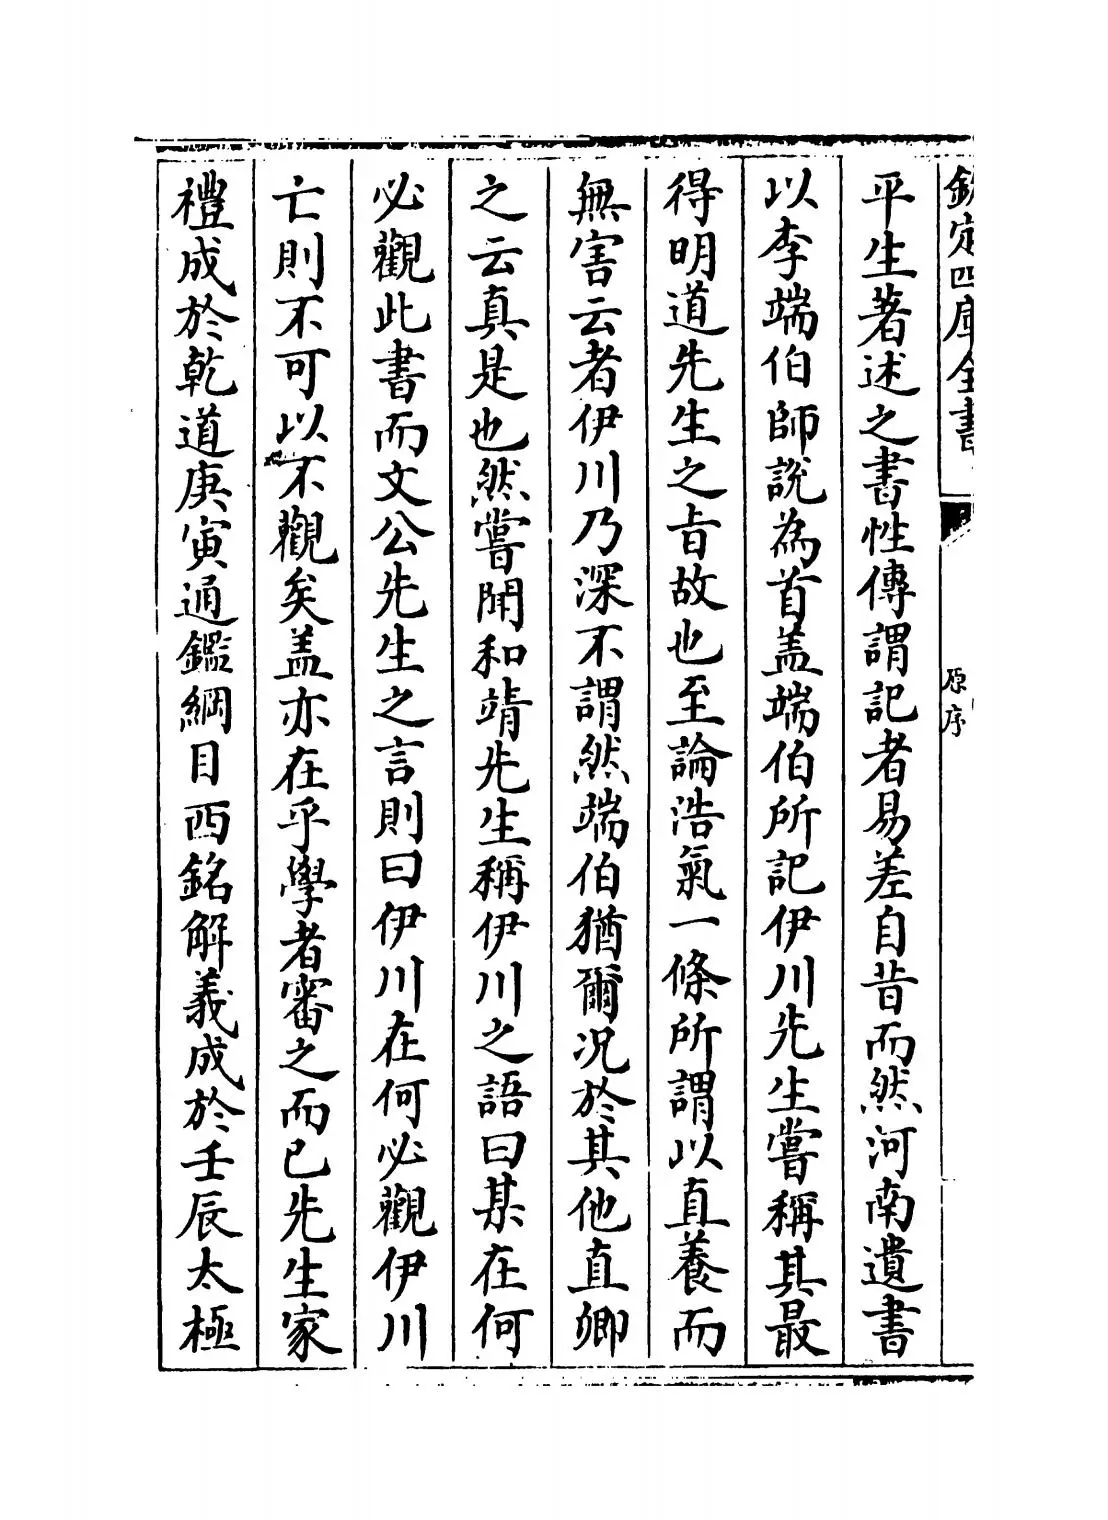 欽定四庫全書
原序
平生著述之書性傳謂記者易差自昔而然河南遺書
以李端伯師說為首盖端伯所記伊川先生嘗稱其最
得明道先生之㫖故也至論浩氣一條所謂以直養而
無害云者伊川乃深不謂然端伯猶爾况於其他直卿
之云真是也然嘗聞和靖先生稱伊川之語曰某在何
必觀此書而文公先生之言則曰伊川在何必觀伊川
亡則不可以不觀矣盖亦在乎學者審之而已先生家
禮成於乾道庚寅通鑑綱目西銘解義成於壬辰太極